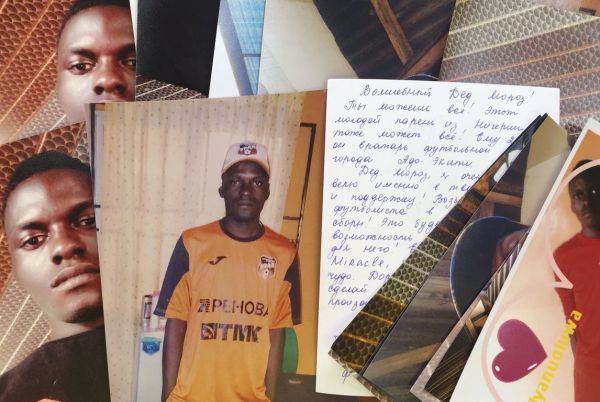 Волшебный Дед Мороз!
Ты можешь всё! Этот
молодой парень из Нигерии
тоже может всё! Ему
он вратарь футбольной
города Адо-Экити.
Дед Мороз, я
верю именно в
и поддержку!
футболиста в
сборы! Это
возможность
для него!
Miracle,
чудо.
сделай
РЕНОВА
ТМК
Iyanuoluwa